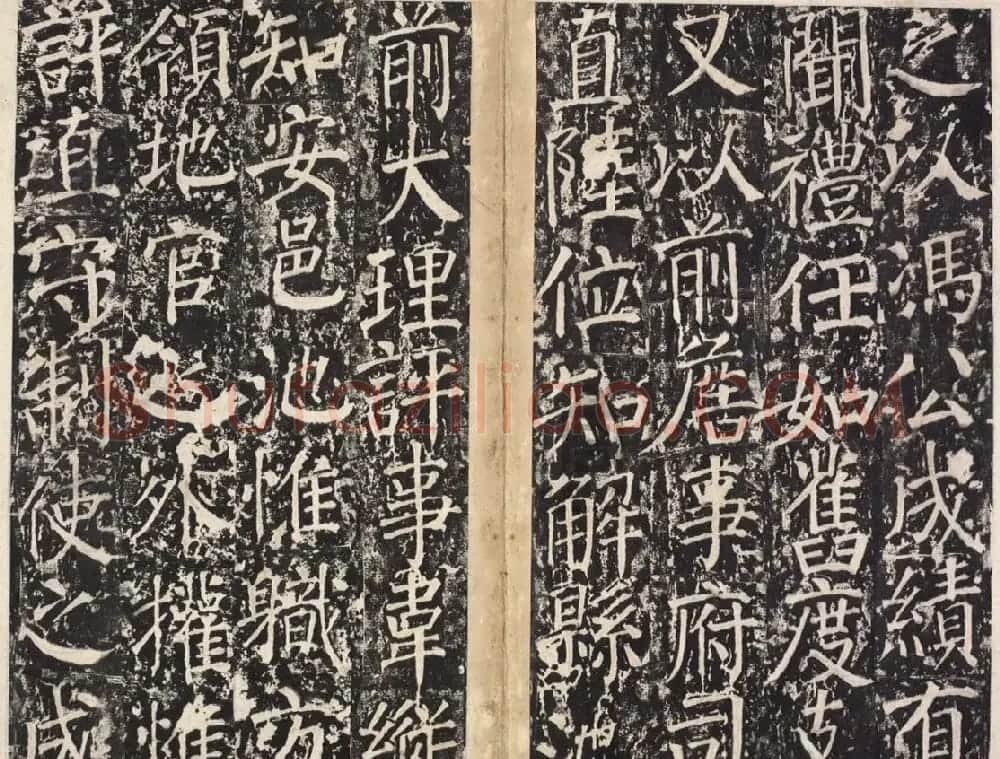 之以馮公成績有
聞禮任如舊度支
又以前詹事府司
直陸位知解縣池
前大理評事韋縱
知安邑池惟職方
領地官之外攉惟
評直守制使之成
Shufaziliao.COM